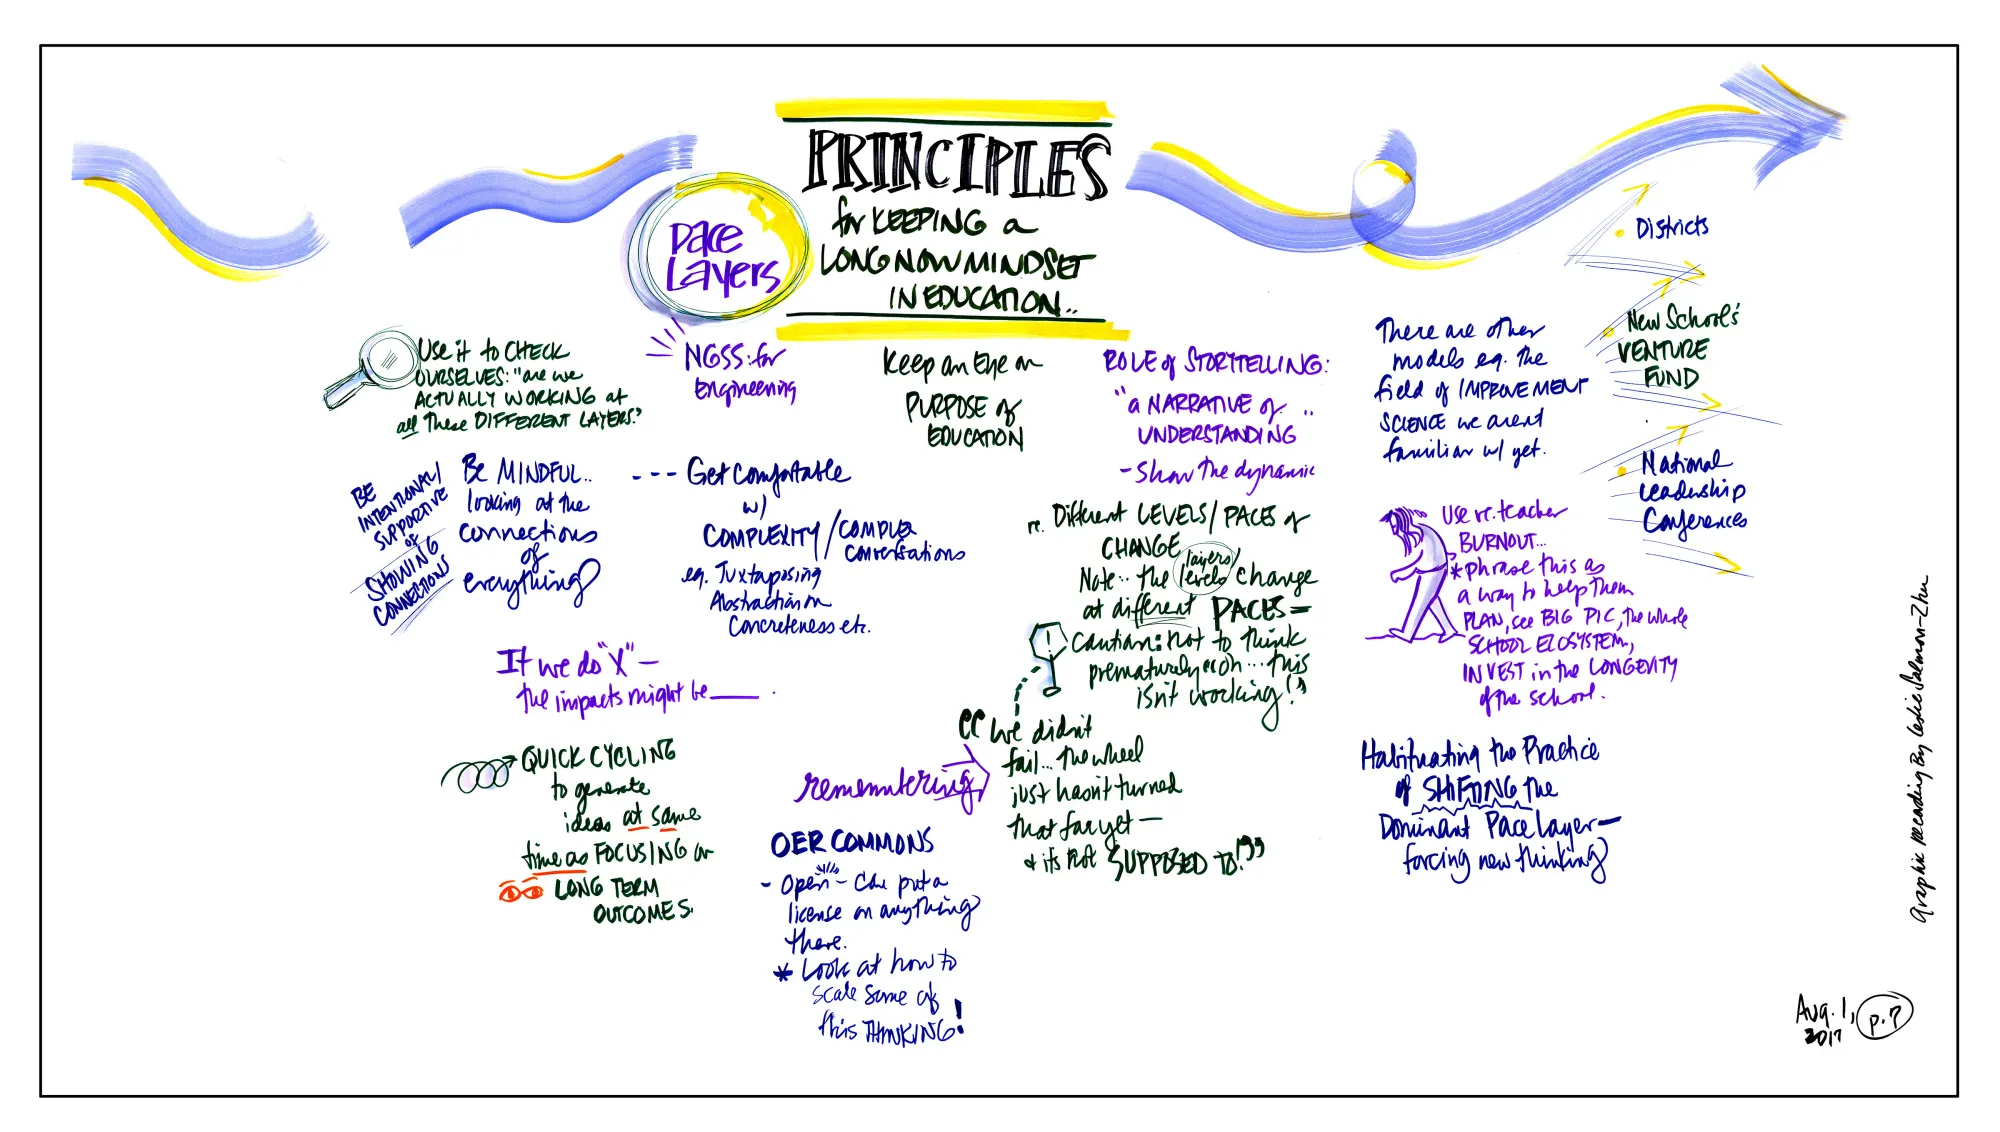 PRINCIPLES
for KEEPING a
LONG NOW MINDSET
IN EDUCATION..
Pace
Layers
Use it to CHECK
OURSELVES: "are we
ACTUALLY WORKING at
all These DIFFERENT LAYERS."
NGSS: for
Engineering
Keep an Eye on
PURPOSE of
EDUCATION
ROLE of STORYTELLING:
"a NARRATIVE of
UNDERSTANDING"
- Show The dynamic
There are other
models eg. the
field of IMPROVEMENT
SCIENCE we arent
familiar w/ yet.
Districts
New School's
VENTURE
FUND
National
Leadership
Conferences
BE
INTENTIONAL/
SUPPORTIVE
of
SHOWING
CONNECTIONS
Be MINDFUL..
looking at the
connections
of
everything
--- Get comfortable
w/
COMPLEXITY/COMPLEX
conversations
eg. Juxtaposing
Abstraction on
Concreteness etc.
re. Different LEVELS/PACES of
CHANGE
Note.. the layers/levels change
at different PACES—
Caution: not to think
prematurely "oh... this
isn't working!"
Use re. teacher
BURNOUT...
* phrase this as
a way to help them
PLAN, see BIG PIC, The whole
SCHOOL ECOSYSTEM,
INVEST in the LONGEVITY
of the school.
If we do "X"—
the impacts might be ____.
QUICK CYCLING
to generate
ideas at same
time as FOCUSING on
LONG TERM
OUTCOMES.
remembering
"We didn't
fail... The wheel
just hasn't turned
that far yet—
& it's not SUPPOSED TO!"
OER COMMONS
- Open - Can put a
license on anything
there.
* Look at how to
scale some of
this THINKING!
Habituating the Practice
of SHIFTING the
Dominant Pace Layer—
forcing new thinking
Graphic recording By Leslie Salmon-Zhu
Aug. 1,
2017
p.7